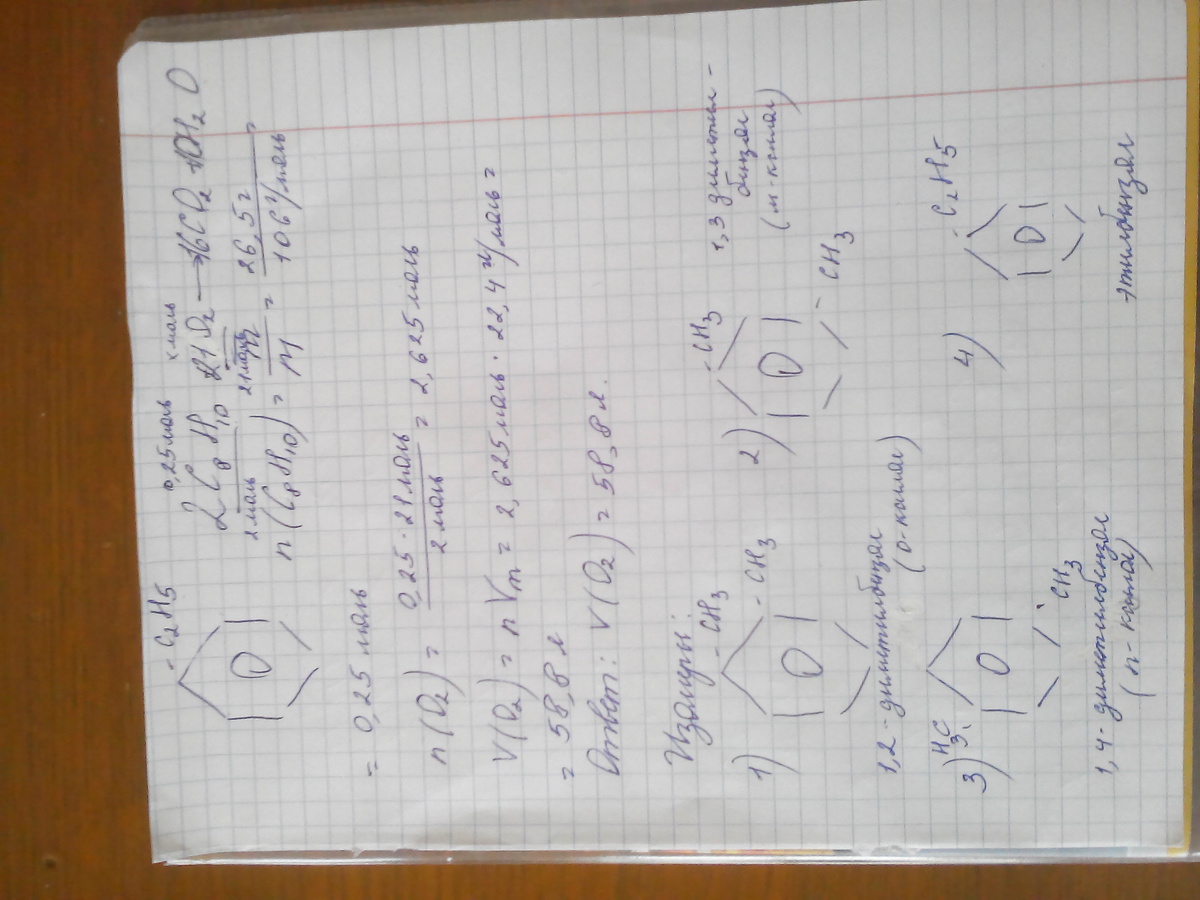 - C₂H₅
0,25 моль x моль
2C₈H₁₀ 21O₂ → 16CO₂ 10H₂O
2 моль 21 моль
n(C₈H₁₀) = m/M = 26,5 г / 106 г/моль =
= 0,25 моль
n(O₂) = 0,25 · 21 моль / 2 моль = 2,625 моль
V(O₂) = n Vm = 2,625 моль · 22,4 л/моль =
= 58,8 л
Ответ: V(O₂) = 58,8 л.
Изомеры:
1) - CH₃
- CH₃
1,2 - диметилбензол
(о-ксилол)
2) - CH₃
- CH₃
1,3 диметил -
бензол
(м-ксилол)
3) H₃C
CH₃
1,4-диметилбензол
(п-ксилол)
4) - C₂H₅
этилбензол